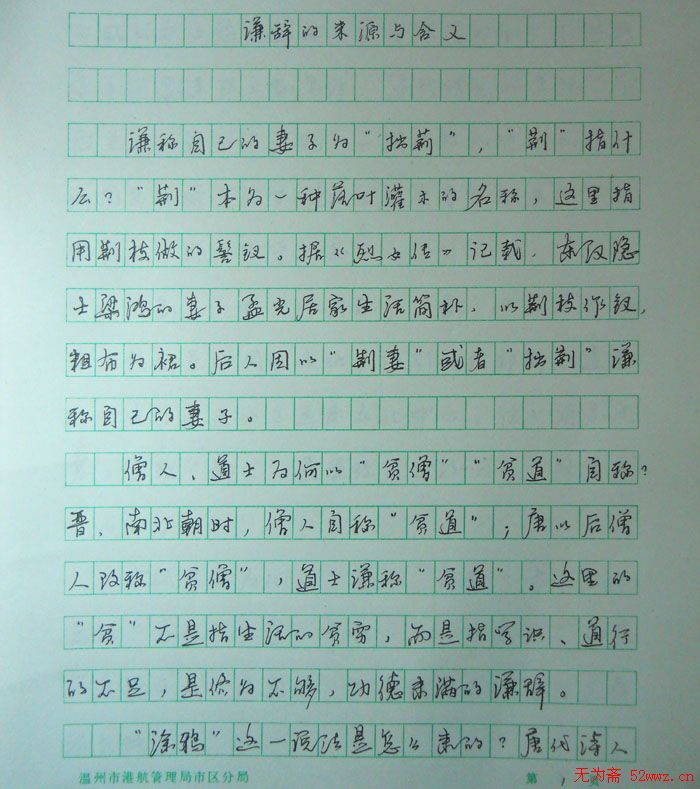 谦辞的来源与含义
谦称自己的妻子为“拙荆”,“荆”指什
么?“荆”本为一种落叶灌木的名称,这里指
用荆枝做的髻钗。据《烈女传》记载,东汉隐
士梁鸿的妻子孟光居家生活简朴,以荆枝作钗,
粗布为裙。后人因以“荆妻”或者“拙荆”谦
称自己的妻子。
僧人、道士为何以“贫僧”“贫道”自称?
晋、南北朝时,僧人自称“贫道”;唐以后僧
人改称“贫僧”,道士谦称“贫道”。这里的
“贫”不是指生活的贫穷,而是指学识、道行
的不足,是修为不够,功德未满的谦辞。
“涂鸦”这一说法是怎么来的?唐代诗人
温州市港航管理局市区分局 第 1 页
无为斋 52wwz.cn